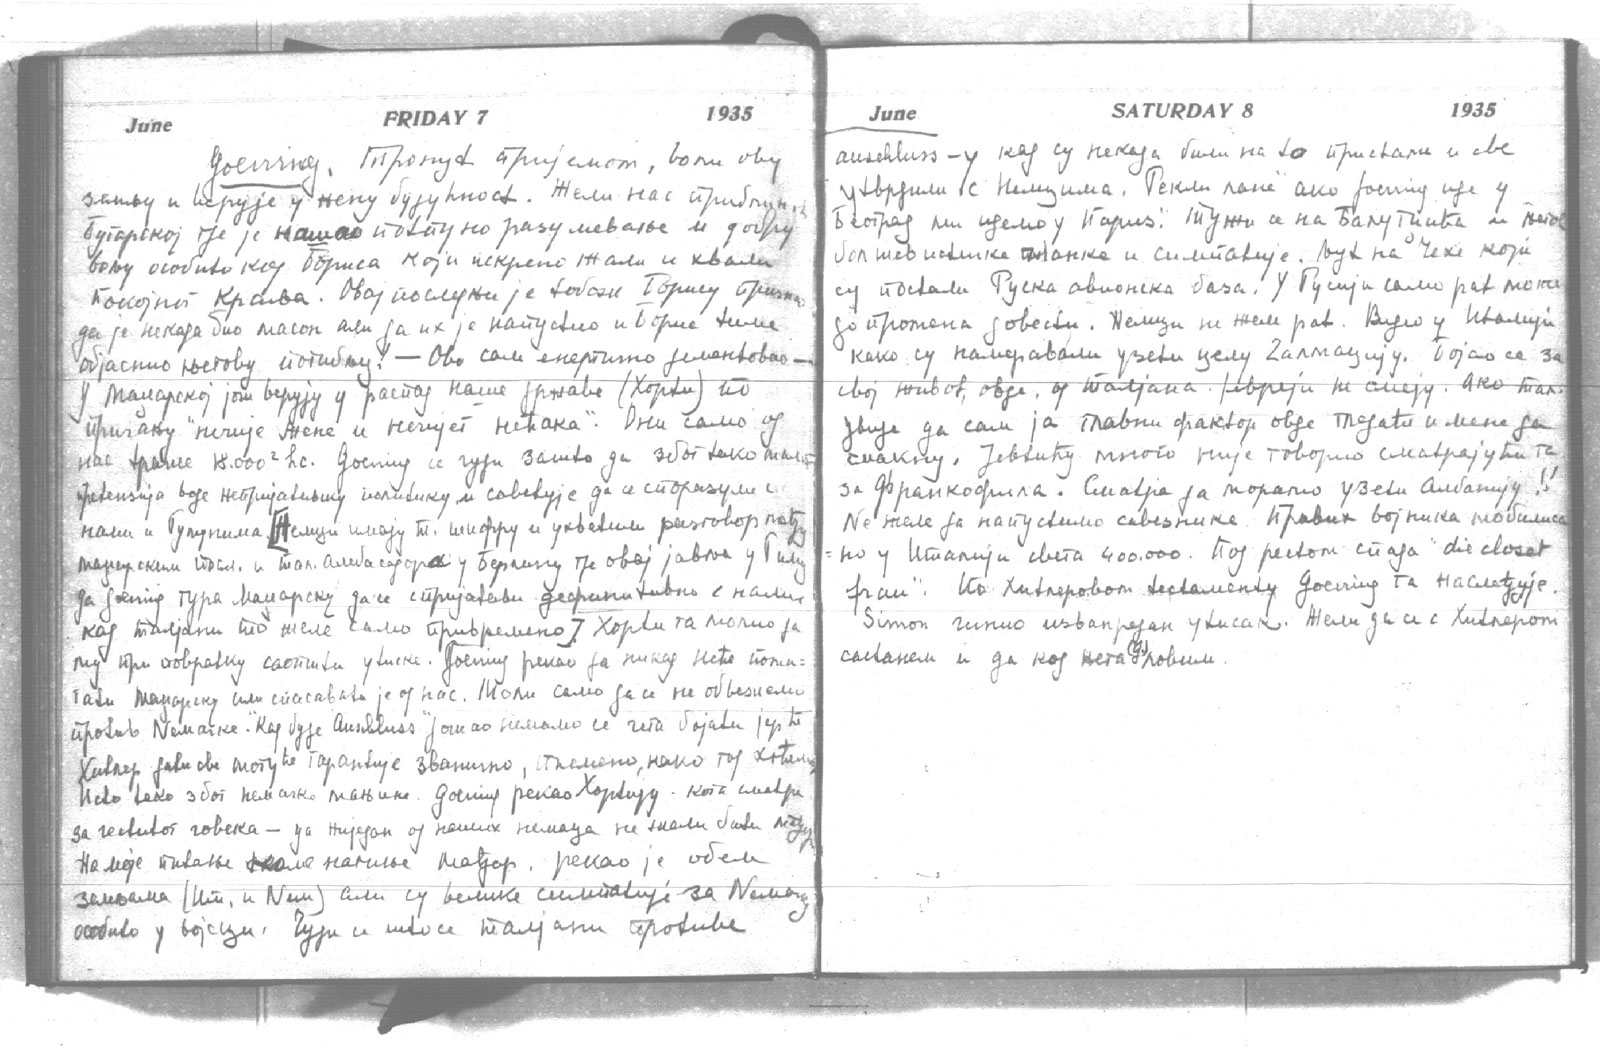 June FRIDAY 7 1935
Goering. Тронут пријемом, воли ову
земљу и верује у њену будућност. Жели нас
Бугарској где је нашао потпуно разумевање и добру
вољу особито код Бориса који искрено жали и хвали
покојног Краља. Овај последњи је тобоже Борису
да је некада био масон али да их је напустио и Борис тиме
објаснио његову погибију! — Ово сам енергично демантовао —
У Мађарској још верују у распад наше државе (Хорти) то
причају "нечије жене и нечијег нећака". Они само од
нас траже 18.000² кс. Goering се чуди зашто да због тако
претензија воде непријатељску политику и саветује да се споразуме с
нама и Румунима. [Немци имају т. шифру и ухватили разговор међу
мађарским посл. и тал. амбасадора у Берлину где овај јавља у Рим
да Goering гура Мађарску да се спријатељи дефинитивно с нама
кад талјани то желе само привремено] Хорти га молио да
му при повратку саопшти утиске. Goering рекао да никад неће пома=
гати Мађарску или спасавати је од нас. Моли само да се не обвежемо
против Nемачке. "Кад буде Anschluss" јошао немамо се чега бојати јер ће
Хитлер дати све могуће гаранције званично, писмено, како год хоћемо
Исто тако због немачке мањине. Goering рекао Хортију - кога сматра
за честитог човека — да ниједан од наших немаца не жали бити
На моје питање нагиње мађар. рекао је обема
земљама (Ит. и Nем) али су велике симпатије за Nемачку
особито у војсци. Чуди се што се талјани противе
June SATURDAY 8 1935
anschluss — у кад су некада били на то пристали и све
утврдили с Немцима. Рекли "ако Goering иде у
Београд ми идемо у Париз". Тужи се на Балугџића и његове
болшевистичке и симпатије. Љут на Чехе који
су постали Руска авионска база. У Русији само рат може
до промена довести. Немци не желе рат. Видео у Италији
како су намеравали узети целу Dалмацију. Бојао се за
свој живот, овде, од талјана. Јевреји не смеју. Ако тал.
да сам ја главни фактор овде гледаће и мене да
смакну. Јевтићу много није говорио сматрајући га
за франкофила. Сматра да морамо узети Албанију!!
Nе желе да напустимо савезнике. Правих војника мобилиса=
но у Италији свега 400.000. Под рестом спада "die closet
frau". По Хитлеровом тестаменту Goering га наслеђује.
Simon чинио изванредан утисак. Жели да се с Хитлером
састанем и да код њега ловим.